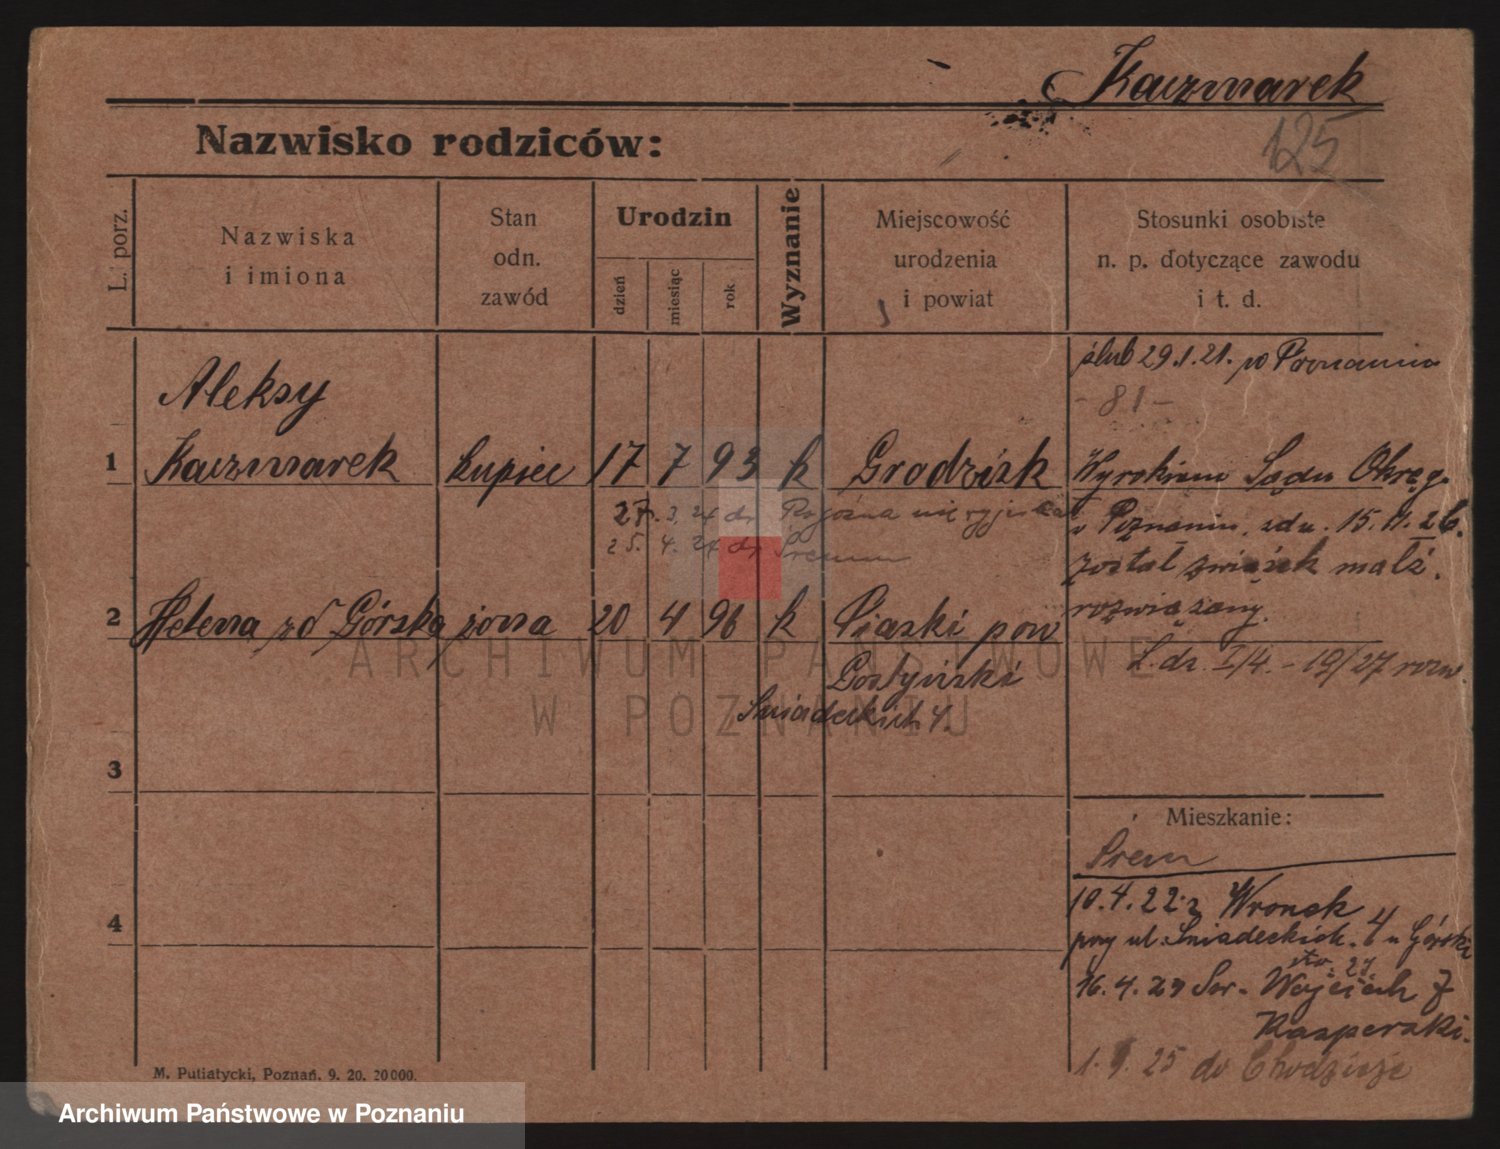 Kaczmarek
125
Nazwisko rodziców:
L. porz.
Nazwiska
i imiona
Stan
odn.
zawód
Urodzin
dzień
miesiąc
rok
Wyznanie
Miejscowość
urodzenia
i powiat
Stosunki osobiste
n. p. dotyczące zawodu
i t. d.
ślub 29.1.21. w Poznaniu
- 81 -
1
Aleksy
Kaczmarek kupiec 17 7 93 k Grodzisk
Wyrokiem Sądu Okręg.
w Poznaniu, zdn. 15.11.26.
został związek małż.
rozwiązany.
L. dz. I/4. - 19/27 rozw.
27. 3. 24 do Pogożna
25. 4. 24 do Śremu
2 Helena zd Górska żona 20 4 96 k Piaski pow
Gostyński
Śniadeckich 4.
3
4
Mieszkanie:
Śrem
10.4.22 z Wronek
przy ul. Śniadeckich 4 u Górski
16.4.23 Św. Wojciech 7
Kasperski.
1. 9. 25 do Chodzieże
M. Putiatycki, Poznań. 9. 20. 20000.
ARCHIWUM PAŃSTWOWE
W POZNANIU
Archiwum Państwowe w Poznaniu